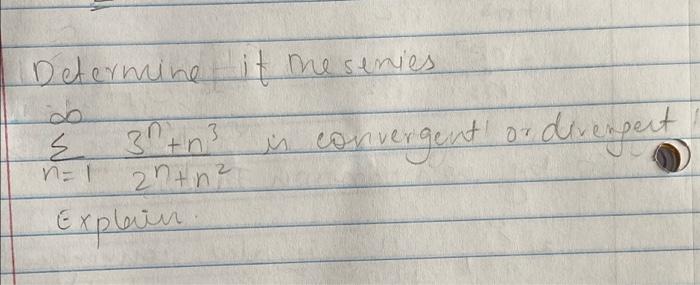 Determine if the series
∞
Σ 3ⁿ+n³ is convergent or divergent
n=1 2ⁿ+n²
Explain.